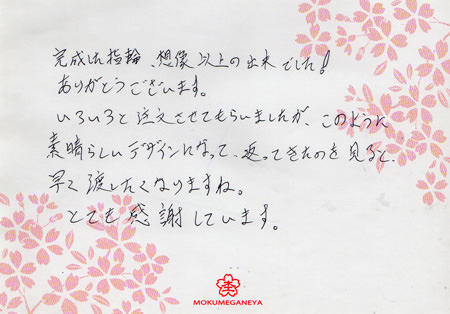 完成した指輪、想像以上の出来でした!
ありがとうございます。
いろいろと注文させてもらいましたが、このように
素晴らしいデザインになって、返ってきたのを見ると、
早く渡したくなりますね。
とても感謝しています。
MOKUMEGANEYA